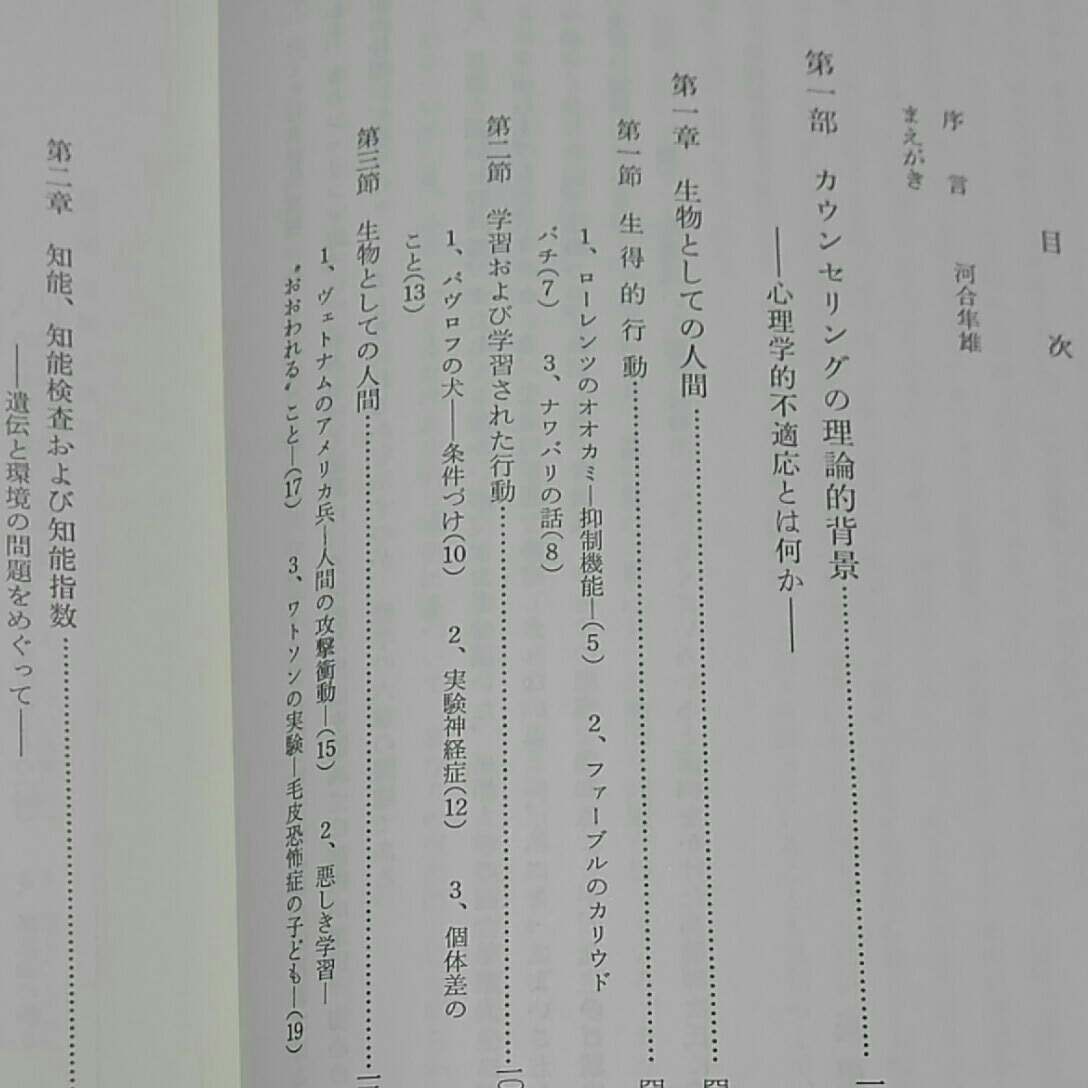 目次
序言　河合隼雄
まえがき
第一部　カウンセリングの理論的背景……………………一
――心理学的不適応とは何か――
第一章　生物としての人間……………………四
第一節　生得的行動……………………四
1、ローレンツのオオカミ―抑制機能―(5)　2、ファーブルのカリウド
バチ(7)　3、ナワバリの話(8)
第二節　学習および学習された行動……………………一〇
1、パヴロフの犬――条件づけ(10)　2、実験神経症(12)　3、個体差の
こと(13)
第三節　生物としての人間……………………
1、ヴェトナムのアメリカ兵―人間の攻撃衝動―(15)　2、悪しき学習―
〝おおわれる〟こと―(17)　3、ワトソンの実験―毛皮恐怖症の子ども―(19)
第二章　知能、知能検査および知能指数……………………
――遺伝と環境の問題をめぐって――